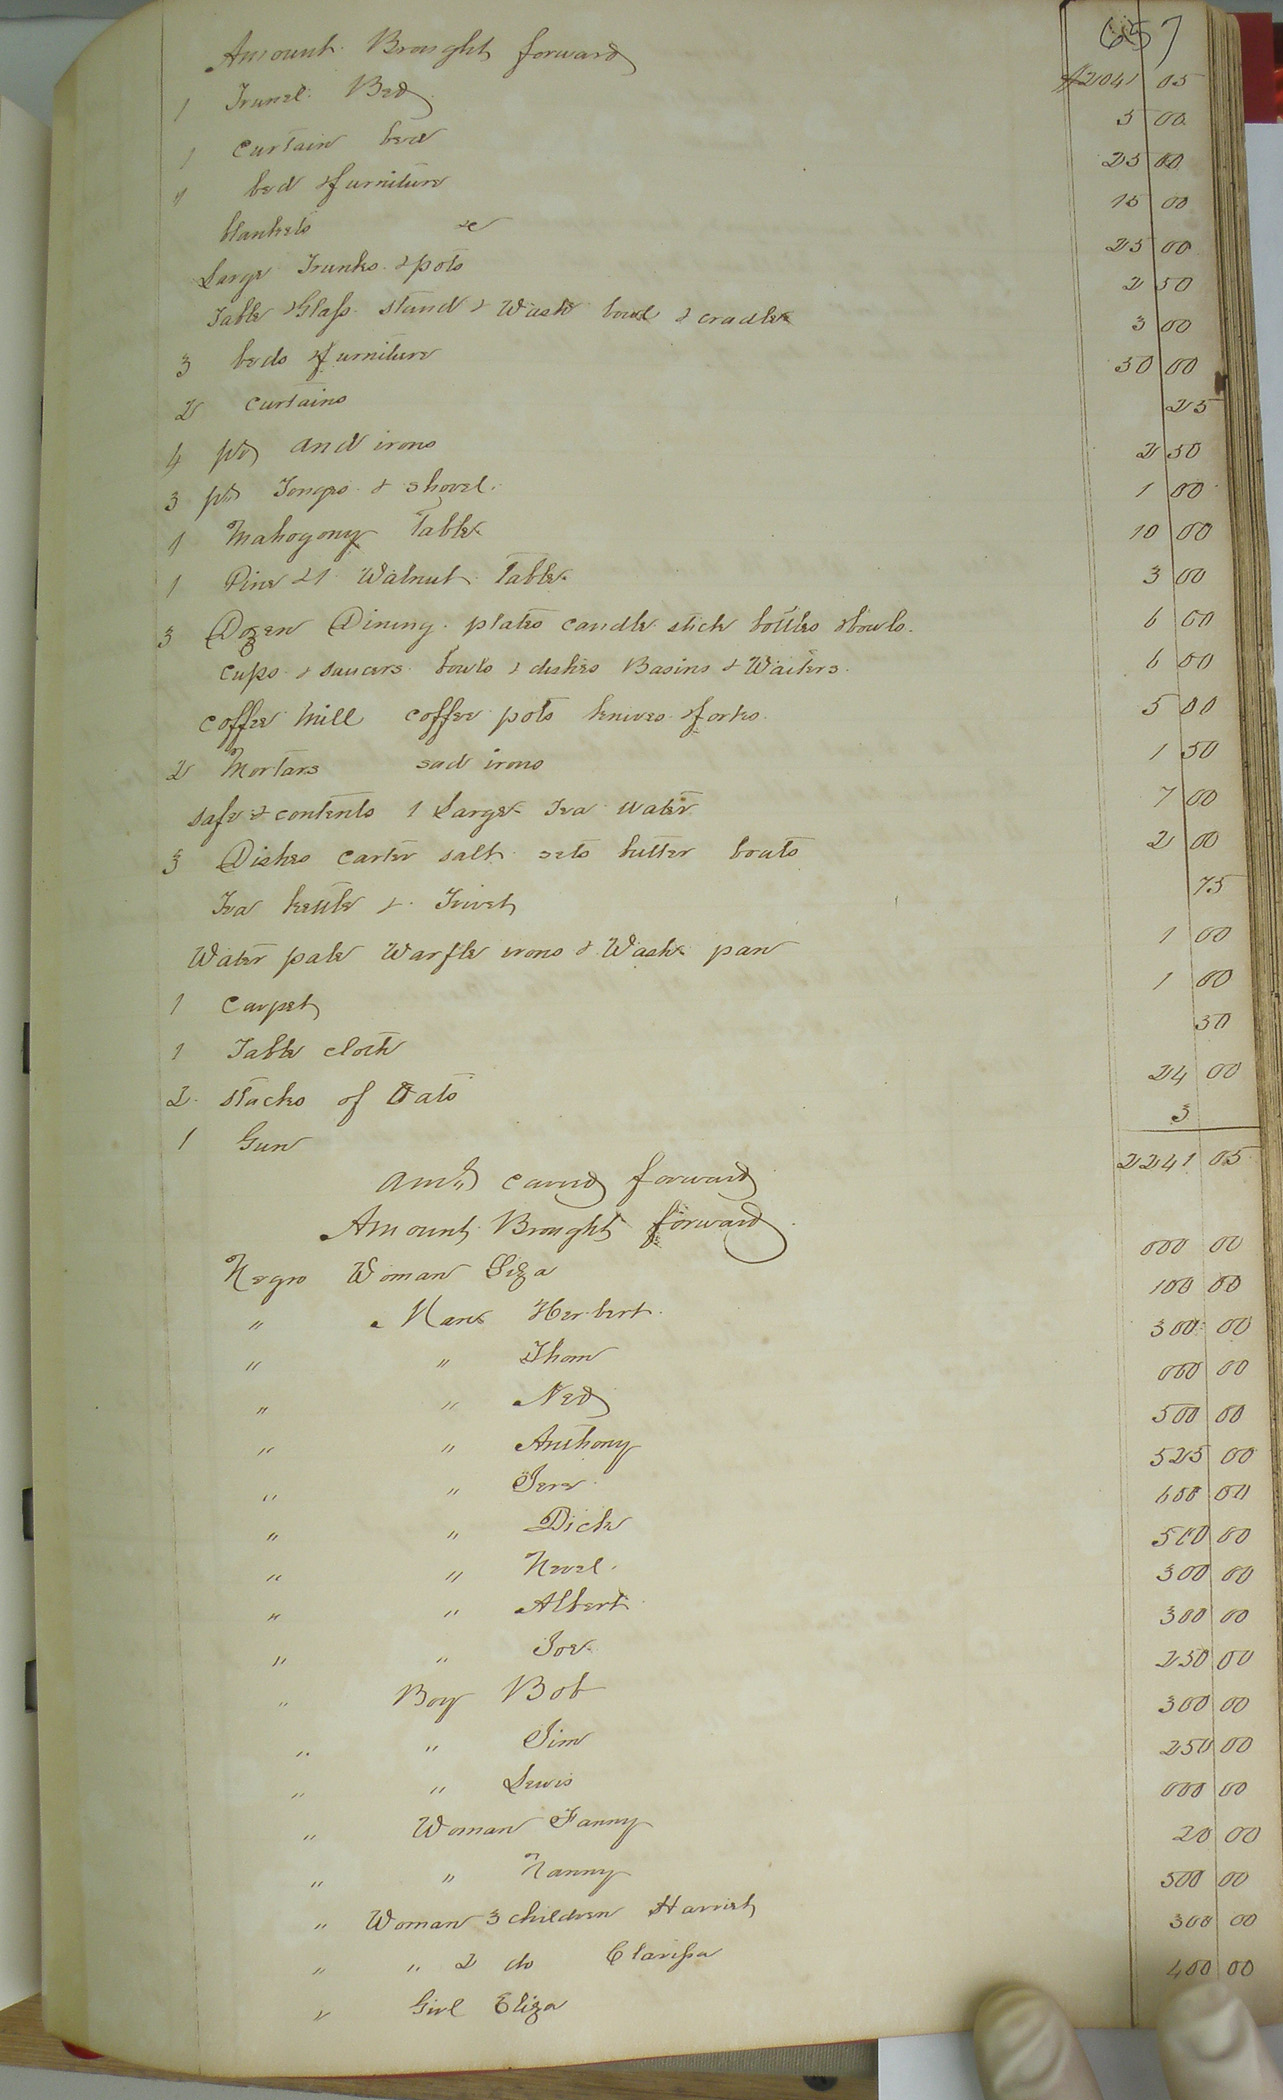 657
Amount Brought forward $2041 05
1 Trunel Bed 5 00
1 Curtain bed 25 00
1 bed & furniture 15 00
blankets &c 25 00
Large Trunks & pots 2 50
Table & Glass stand & Wash bowl & cradle 3 00
3 beds & furniture 50 00
2 Curtains 25
4 pr and irons 2 50
3 pr Tongs & shovel 1 00
1 Mahogony Table 10 00
1 Pine & 1 Walnut Table 3 00
3 Dozen Dining plates candle stick bottles & bowls 6 00
Cups & saucers bowls & dishes Basins & Waiters 6 00
Coffee Mill coffee pots knives & forks 5 00
2 Mortars sad irons 1 50
safe & contents 1 Large Tea water 7 00
3 Dishes carter salt sets butter boats 2 00
Tea kettle & Trivet 75
Water pale Warfle irons & Wash pan 1 00
1 Carpet 1 00
1 Table cloth 50
2 stacks of Oats 24 00
1 Gun 3
Amt carrd forward 2241 05
Amount Brought forward
Negro Woman Siza 000 00
" Man Herbert 100 00
" " Thom 300 00
" " Ned 000 00
" " Anthony 500 00
" " Jere 525 00
" " Dick 600 00
" " Nevel 500 00
" " Albert 300 00
" " Joe 300 00
" Boy Bob 250 00
" " Jim 300 00
" " Lewis 250 00
" Woman Fanny 000 00
" " Nanny 20 00
" Woman 3 children Harriet 500 00
" " 2 do Clarissa 300 00
" Girl Eliza 400 00